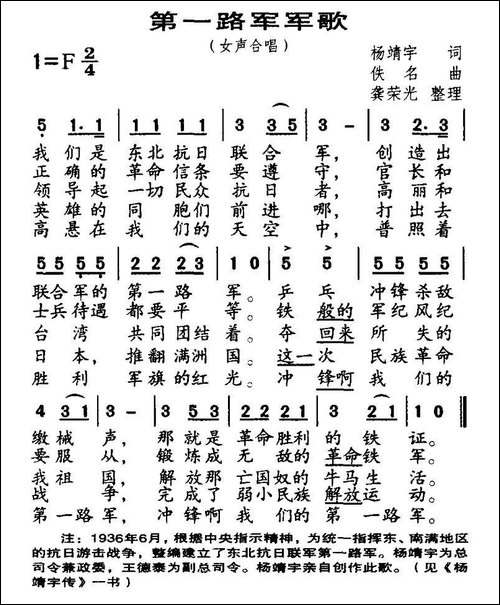 第一路军军歌
(女声合唱)
1=F 2/4
杨靖宇 词
佚名 曲
龚荣光 整理
5 1·1 1111 11 3 35 3- 3 2·3
我们是 东北抗日 联合 军, 创造出
正确的 革命信条 要遵 守, 官长和
领导起 一切民众 抗日 者, 高丽和
英雄的 同胞们 前进 哪, 打出去
高悬在 我们的 天空 中, 普照着
55 55 22 23 10 5 5 55 55
联合军的 第一路 军。 乒乓 冲锋杀敌
士兵待遇 都要平 等。 铁般的 军纪风纪
台湾 共同团结 着。 夺回来 所失的
日本, 推翻满洲 国。 这一次 民族革命
胜利 军旗的红 光。 冲锋啊 我们的
4 31 3- 3 53 22 21 3 21 10
缴械声, 那就是 革命胜利 的铁证。
要服从, 锻炼成 无敌的 革命铁军。
我祖国, 解放那 亡国奴的 牛马生活。
战争, 完成了 弱小民族 解放运动。
第一路军, 冲锋啊 我们的 第一路军。
注: 1936年6月, 根据中央指示精神, 为统一指挥东、南满地区
的抗日游击战争, 整编建立了东北抗日联军第一路军。杨靖宇为总
司令兼政委, 王德泰为副总司令。杨靖宇亲自创作此歌。(见《杨
靖宇传》一书)